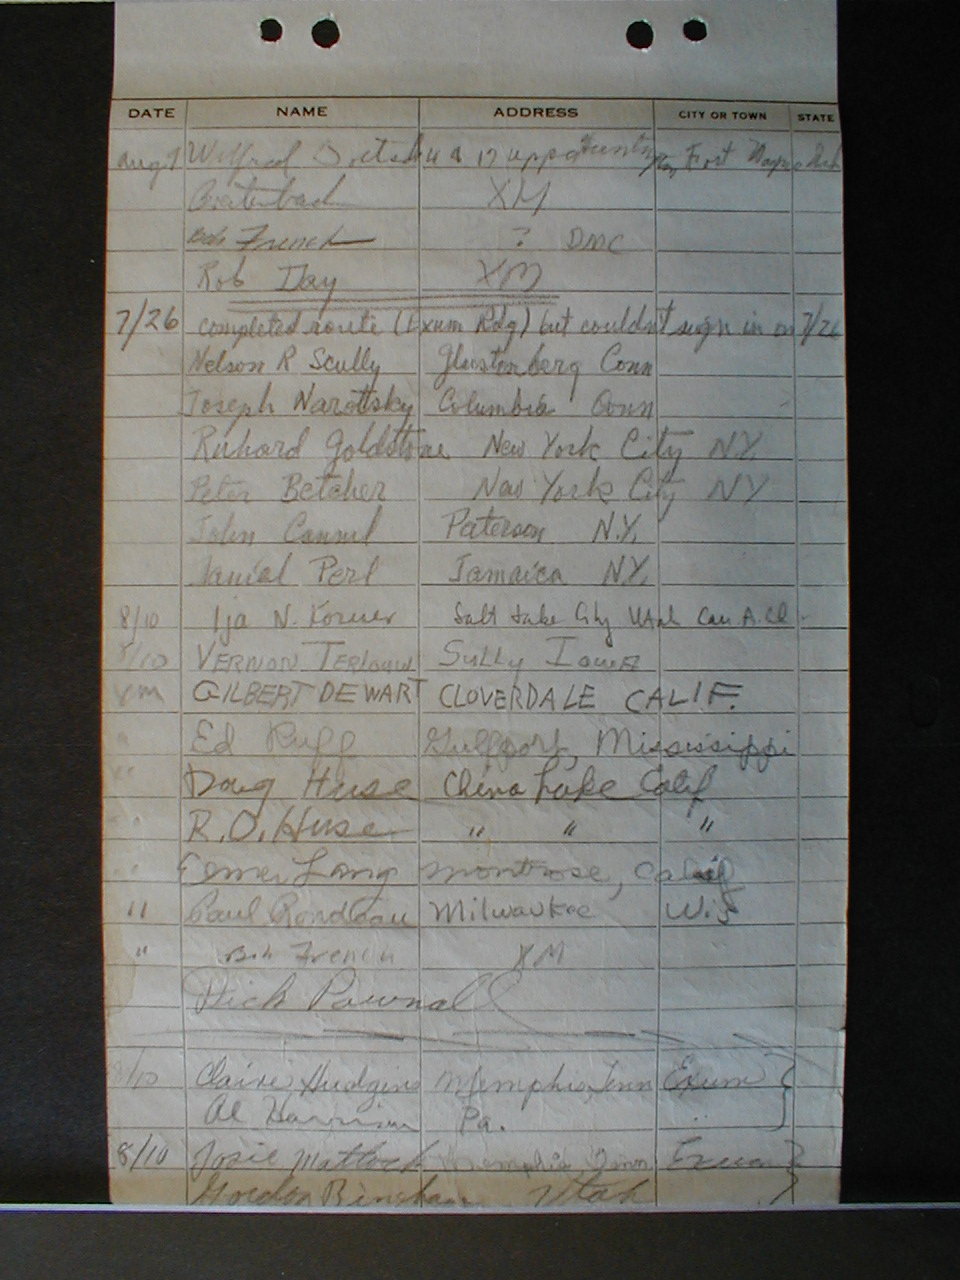 DATE NAME ADDRESS CITY OR TOWN STATE
Aug 7 Wilfred Fort Wayne
XM
Bob French ? DMC
Rob Day XM
7/26 completed route (Exum Rdg) but couldn't sign in on 7/26
Nelson R Scully Conn
Joseph Narottsky Columbia Conn
Richard Goldstone New York City N.Y.
Peter Betcher New York City NY
John Paterson N.Y.
Daniel Perl Jamaica NY.
8/10 N. Salt Lake City Utah
8/10 VERNON Sully Iowa
GILBERT DEWART CLOVERDALE CALIF.
Ed Ruff Gulfport, Mississippi
" Doug Huse China Lake Calif
" R.O. Huse " " "
Lang Montrose, Calif
" Paul Rondeau Milwaukee Wis
" Bob French XM
Dick Pownall
8/10 Claire Hudgins Memphis, Tenn Exum
Al Harrison Pa. "
8/10 Josie Mattock Memphis, Exum
Gordon Bingham Utah